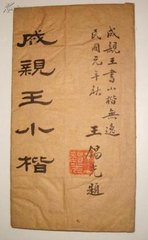 成親王書小楷無逸
民國元年秋
王錫光題
成親王小楷